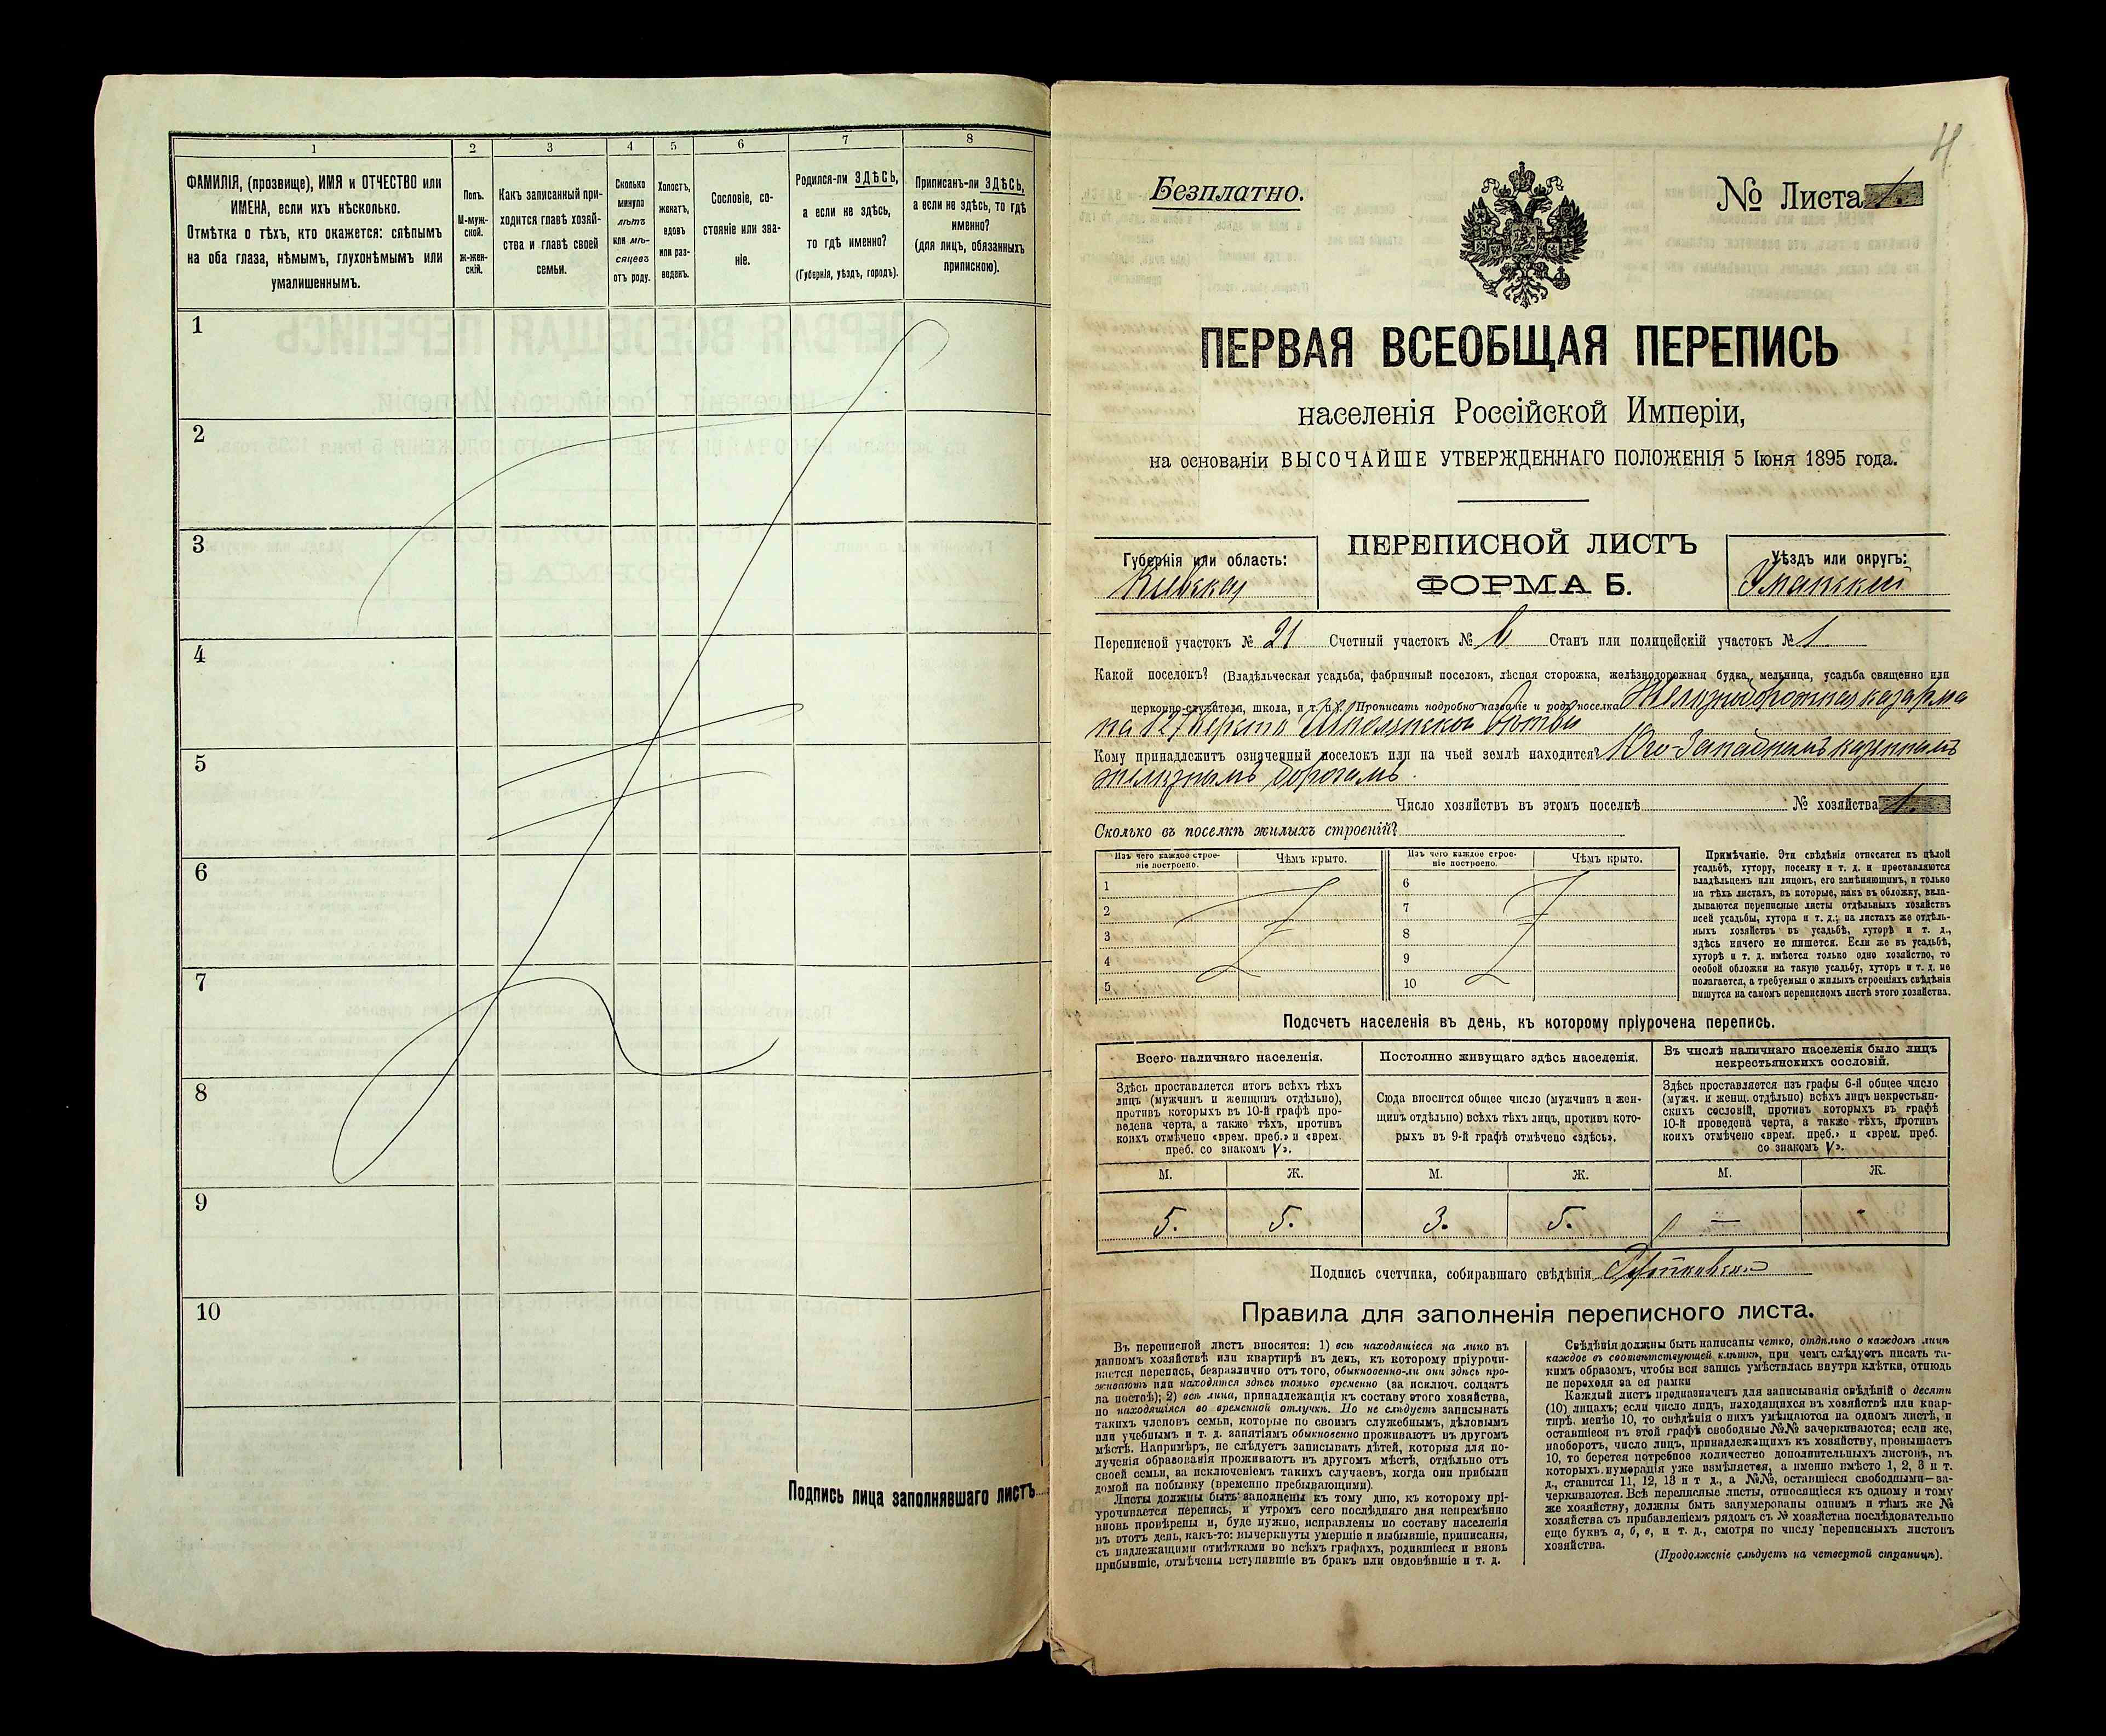 1
2
3
4
5
6
7
8
ФАМИЛІЯ, (прозвище), ИМЯ и ОТЧЕСТВО или
ИМЕНА, если ихъ нѣсколько.
Отмѣтка о тѣхъ, кто окажется: слѣпымъ
на оба глаза, нѣмымъ, глухонѣмымъ или
умалишеннымъ.
Полъ.
М-муж-
ской.
ж-жен-
скій.
Какъ записанный при-
ходится главѣ хозяй-
ства и главѣ своей
семьи.
Сколько
минуло
лѣтъ
или мѣ-
сяцевъ
отъ роду.
Холостъ,
женатъ,
вдовъ
или раз-
веденъ.
Сословіе, со-
стояніе или зва-
ніе.
Родился-ли ЗДѢСЬ,
а если не здѣсь,
то гдѣ именно?
(Губернія, уѣздъ, городъ).
Приписанъ-ли ЗДѢСЬ,
а если не здѣсь, то гдѣ
именно?
(для лицъ, обязанныхъ
припискою).
1
2
3
4
5
6
7
8
9
10
Подпись лица заполнявшаго листъ
Безплатно.
№ Листа 1.
ПЕРВАЯ ВСЕОБЩАЯ ПЕРЕПИСЬ
населенія Россійской Имперіи,
на основаніи ВЫСОЧАЙШЕ УТВЕРЖДЕННАГО ПОЛОЖЕНІЯ 5 Іюня 1895 года.
Губернія или область:
Кіевская
ПЕРЕПИСНОЙ ЛИСТЪ
ФОРМА Б.
Уѣздъ или округъ:
Уманскій
Переписной участокъ № 21 Счетный участокъ № 6 Станъ или полицейскій участокъ № 1
Какой поселокъ? (Владѣльческая усадьба, фабричный поселокъ, лѣсная сторожка, желѣзнодорожная будка, мельница, усадьба священно или
церковно-служителя, школа, и т. п.). Прописать подробно названіе и родъ поселка Желѣзнодорожная казарма
на 127 верстѣ Шполянской вѣтви
Кому принадлежитъ означенный поселокъ или на чьей землѣ находится? Юго-Западнымъ казеннымъ
желѣзнымъ дорогамъ.
Число хозяйствъ въ этомъ поселкѣ № хозяйства 1.
Сколько въ поселкѣ жилыхъ строеній?
Изъ чего каждое строе-
ніе построено.
Чѣмъ крыто.
Изъ чего каждое строе-
ніе построено.
Чѣмъ крыто.
1
2
3
4
5
6
7
8
9
10
Примѣчаніе. Эти свѣдѣнія относятся къ цѣлой
усадьбѣ, хутору, поселку и т. д. и проставляются
владѣльцемъ или лицомъ, его замѣняющимъ, и только
на тѣхъ листахъ, въ которые, какъ въ обложку, вкла-
дываются переписные листы отдѣльныхъ хозяйствъ
всей усадьбы, хутора и т. д.; на листахъ же отдѣль-
ныхъ хозяйствъ въ усадьбѣ, хуторѣ и т. д.,
здѣсь ничего не пишется. Если же въ усадьбѣ,
хуторѣ и т. д. имѣется только одно хозяйство, то
особой обложки на такую усадьбу, хуторъ и т. д. не
полагается, а требуемыя о жилыхъ строеніяхъ свѣдѣнія
пишутся на самомъ переписномъ листѣ этого хозяйства.
Подсчетъ населенія въ день, къ которому пріурочена перепись.
Всего наличнаго населенія.
Постоянно живущаго здѣсь населенія.
Въ числѣ наличнаго населенія было лицъ
некрестьянскихъ сословій.
Здѣсь проставляется итогъ всѣхъ тѣхъ
лицъ (мужчинъ и женщинъ отдѣльно),
противъ которыхъ въ 10-й графѣ про-
ведена черта, а также тѣхъ, противъ
коихъ отмѣчено «врем. преб.» и «врем.
преб. со знакомъ V».
Сюда вносится общее число (мужчинъ и жен-
щинъ отдѣльно) всѣхъ тѣхъ лицъ, противъ кото-
рыхъ въ 9-й графѣ отмѣчено «здѣсь».
Здѣсь проставляется изъ графы 6-й общее число
(мужч. и женщ. отдѣльно) всѣхъ лицъ некрестьян-
скихъ сословій, противъ которыхъ въ графѣ
10-й проведена черта, а также тѣхъ, противъ
коихъ отмѣчено «врем. преб.» и «врем. преб.
со знакомъ V».
М. Ж. М. Ж. М. Ж.
5. 5. 3. 5. —
Подпись счетчика, собиравшаго свѣдѣнія
Правила для заполненія переписного листа.
Въ переписной листъ вносятся: 1) всѣ находящіеся на лицо въ
данномъ хозяйствѣ или квартирѣ въ день, къ которому пріурочи-
вается перепись, безразлично отъ того, обыкновенно-ли они здѣсь про-
живаютъ или находятся здѣсь только временно (за исключ. солдатъ
на постоѣ); 2) всѣ лица, принадлежащія къ составу этого хозяйства,
но находящіяся во временной отлучкѣ. Но не слѣдуетъ записывать
такихъ членовъ семьи, которые по своимъ служебнымъ, дѣловымъ
или учебнымъ и т. д. занятіямъ обыкновенно проживаютъ въ другомъ
мѣстѣ. Напримѣръ, не слѣдуетъ записывать дѣтей, которыя для по-
лученія образованія проживаютъ въ другомъ мѣстѣ, отдѣльно отъ
своей семьи, за исключеніемъ такихъ случаевъ, когда они прибыли
домой на побывку (временно пребывающими).
Листы должны быть заполнены къ тому дню, къ которому прі-
урочивается перепись, и утромъ сего послѣдняго дня непремѣнно
вновь провѣрены и, буде нужно, исправлены по составу населенія
въ этотъ день, какъ-то: вычеркнуты умершіе и выбывшіе, приписаны,
съ надлежащими отмѣтками во всѣхъ графахъ, родившіеся и вновь
прибывшіе, отмѣчены вступившіе въ бракъ или овдовѣвшіе и т. д.
Свѣдѣнія должны быть написаны четко, отдѣльно о каждомъ лицѣ
каждое въ соотвѣтствующей клѣткѣ, при чемъ слѣдуетъ писать та-
кимъ образомъ, чтобы вся запись умѣстилась внутри клѣтки, отнюдь
не переходя за ея рамки
Каждый листъ предназначенъ для записыванія свѣдѣній о десяти
(10) лицахъ; если число лицъ, находящихся въ хозяйствѣ или квар-
тирѣ, менѣе 10, то свѣдѣнія о нихъ умѣщаются на одномъ листѣ, и
оставшіеся въ этой графѣ свободные №№ зачеркиваются; если же,
наоборотъ, число лицъ, принадлежащихъ къ хозяйству, превышаетъ
10, то берется потребное количество дополнительныхъ листовъ, въ
которыхъ нумерація уже измѣняется, а именно вмѣсто 1, 2, 3 и т.
д., ставится 11, 12, 13 и т д., а №№, оставшіеся свободными—за-
черкиваются. Всѣ переписные листы, относящіеся къ одному и тому
же хозяйству, должны быть занумерованы однимъ и тѣмъ же №
хозяйства съ прибавленіемъ рядомъ съ № хозяйства послѣдовательно
еще буквъ а, б, в, и т. д., смотря по числу переписныхъ листовъ
хозяйства.
(Продолженіе слѣдуетъ на четвертой страницѣ).